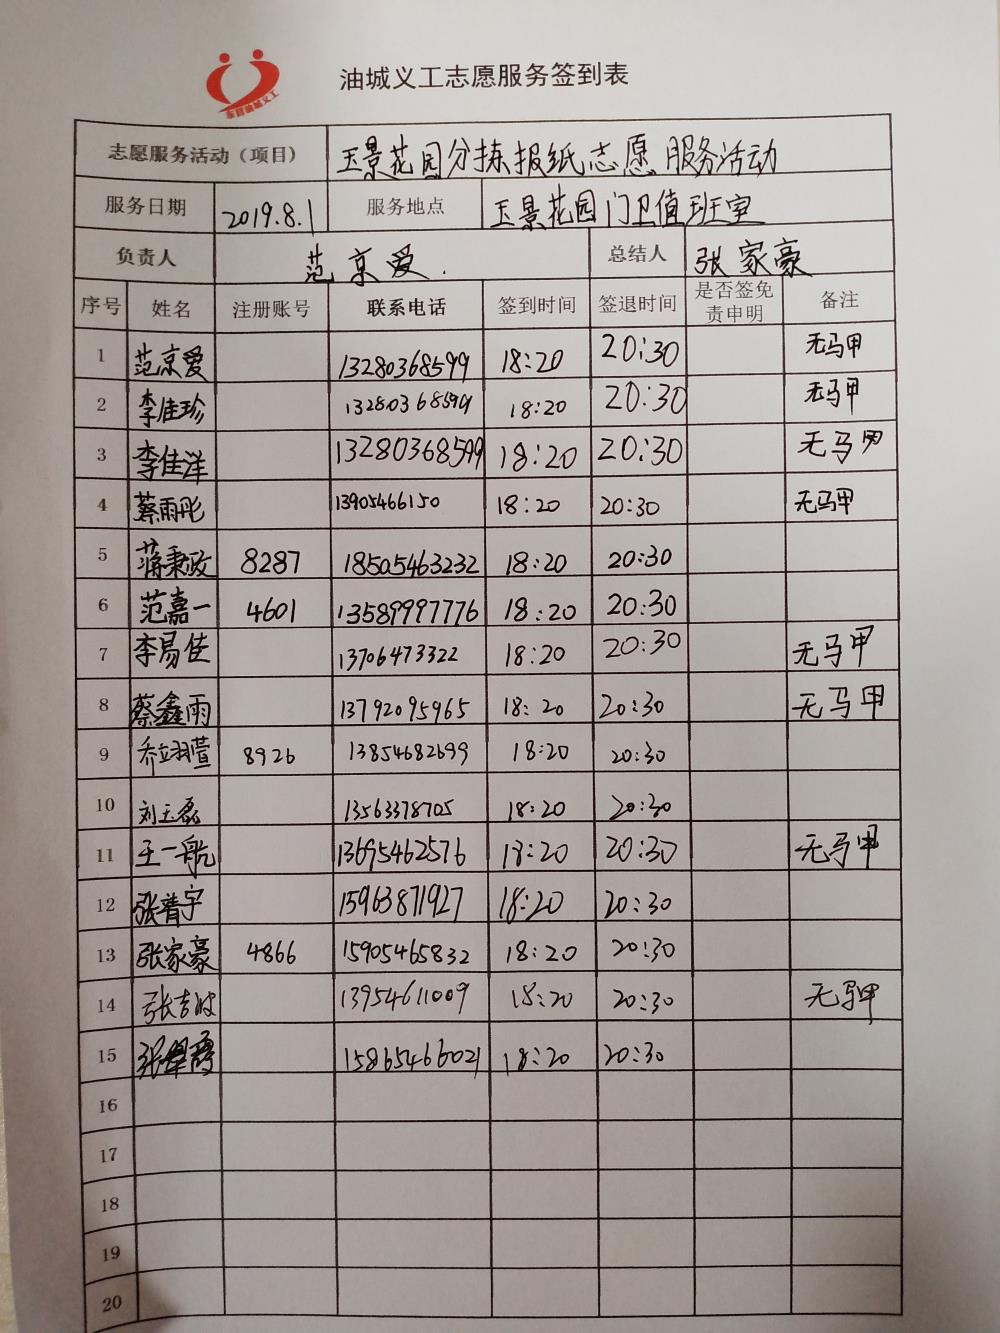 油城义工志愿服务签到表
志愿服务活动（项目） 玉景花园分拣报纸志愿服务活动
服务日期 2019.8.1 服务地点 玉景花园门卫值班室
负责人 范京爱. 总结人 张家豪
序号 姓名 注册账号 联系电话 签到时间 签退时间 是否签免责申明 备注
1 范京爱 13280368599 18:20 20:30 无马甲
2 李佳珍 13280368599 18:20 20:30 无马甲
3 李佳洋 13280368599 18:20 20:30 无马甲
4 蔡雨彤 13905466150 18:20 20:30 无马甲
5 蒋秉政 8287 18505463232 18:20 20:30
6 范嘉一 4601 13589997776 18:20 20:30
7 李易佳 13706473322 18:20 20:30 无马甲
8 蔡鑫雨 13792095965 18:20 20:30 无马甲
9 乔翊萱 8926 13854682699 18:20 20:30
10 刘玉磊 13563378705 18:20 20:30
11 王一航 13695462576 18:20 20:30 无马甲
12 张普宇 15963871927 18:20 20:30
13 张家豪 4866 15905465832 18:20 20:30
14 张吉波 13954611009 18:20 20:30 无马甲
15 15865466021 18:20 20:30
16
17
18
19
20